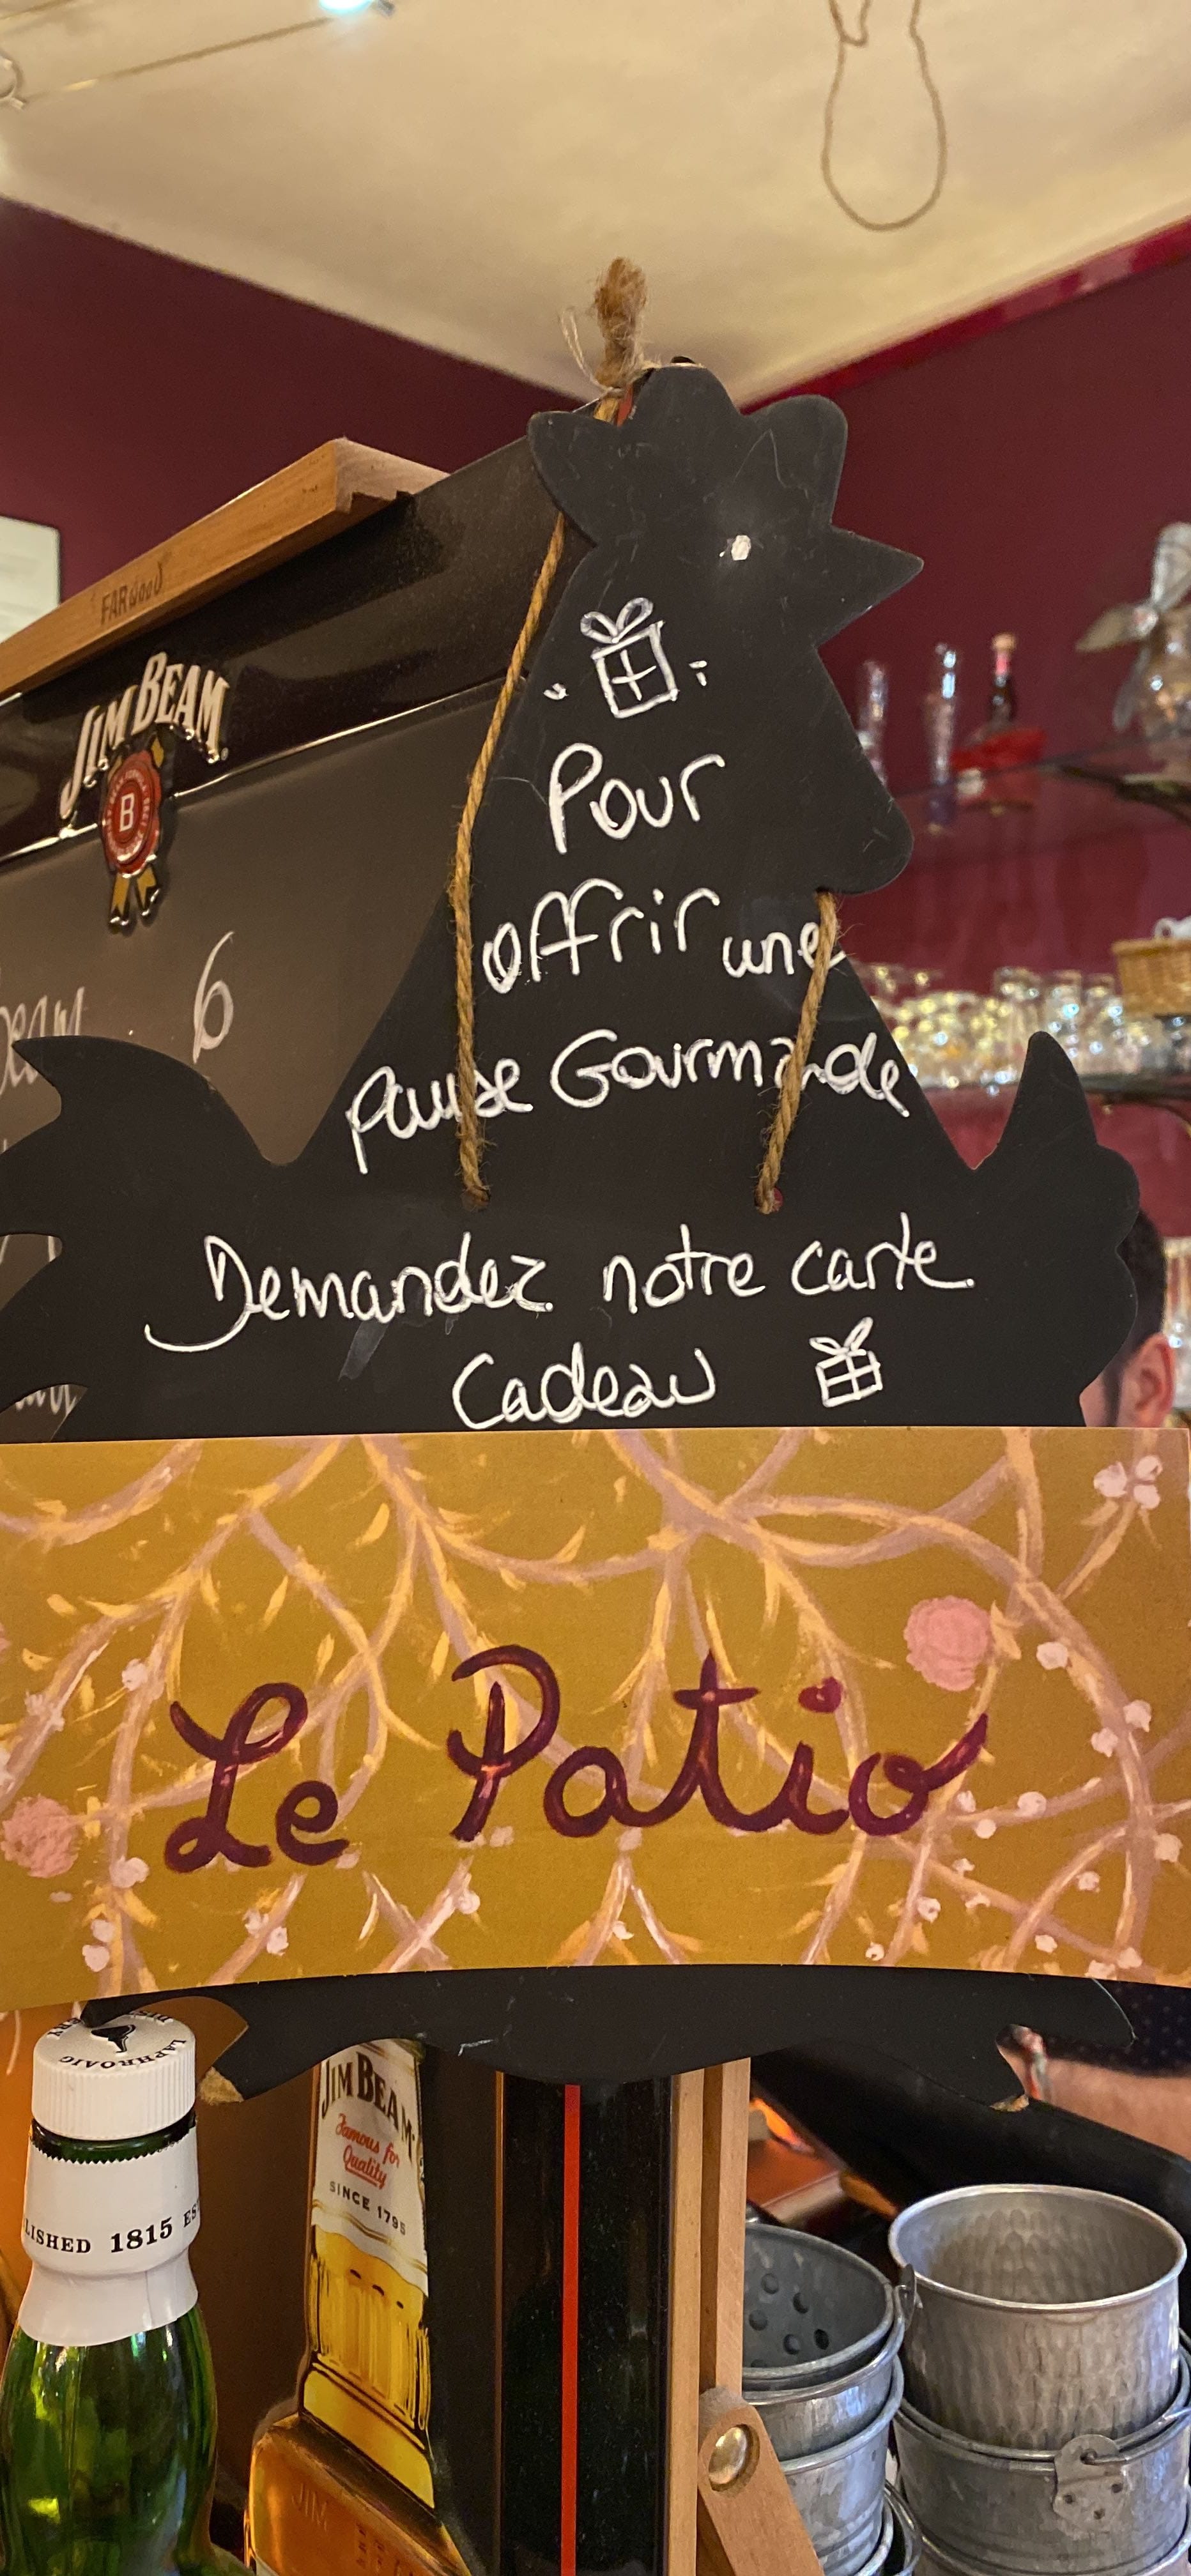 FARWOOD
JIM BEAM
B
6
Pour
offrir une
pause Gourmande
Demandez notre carte
Cadeau
Le Patio
LAPHROAIG
JIM BEAM
Famous for
Quality
SINCE 1795
LISHED 1815 ES